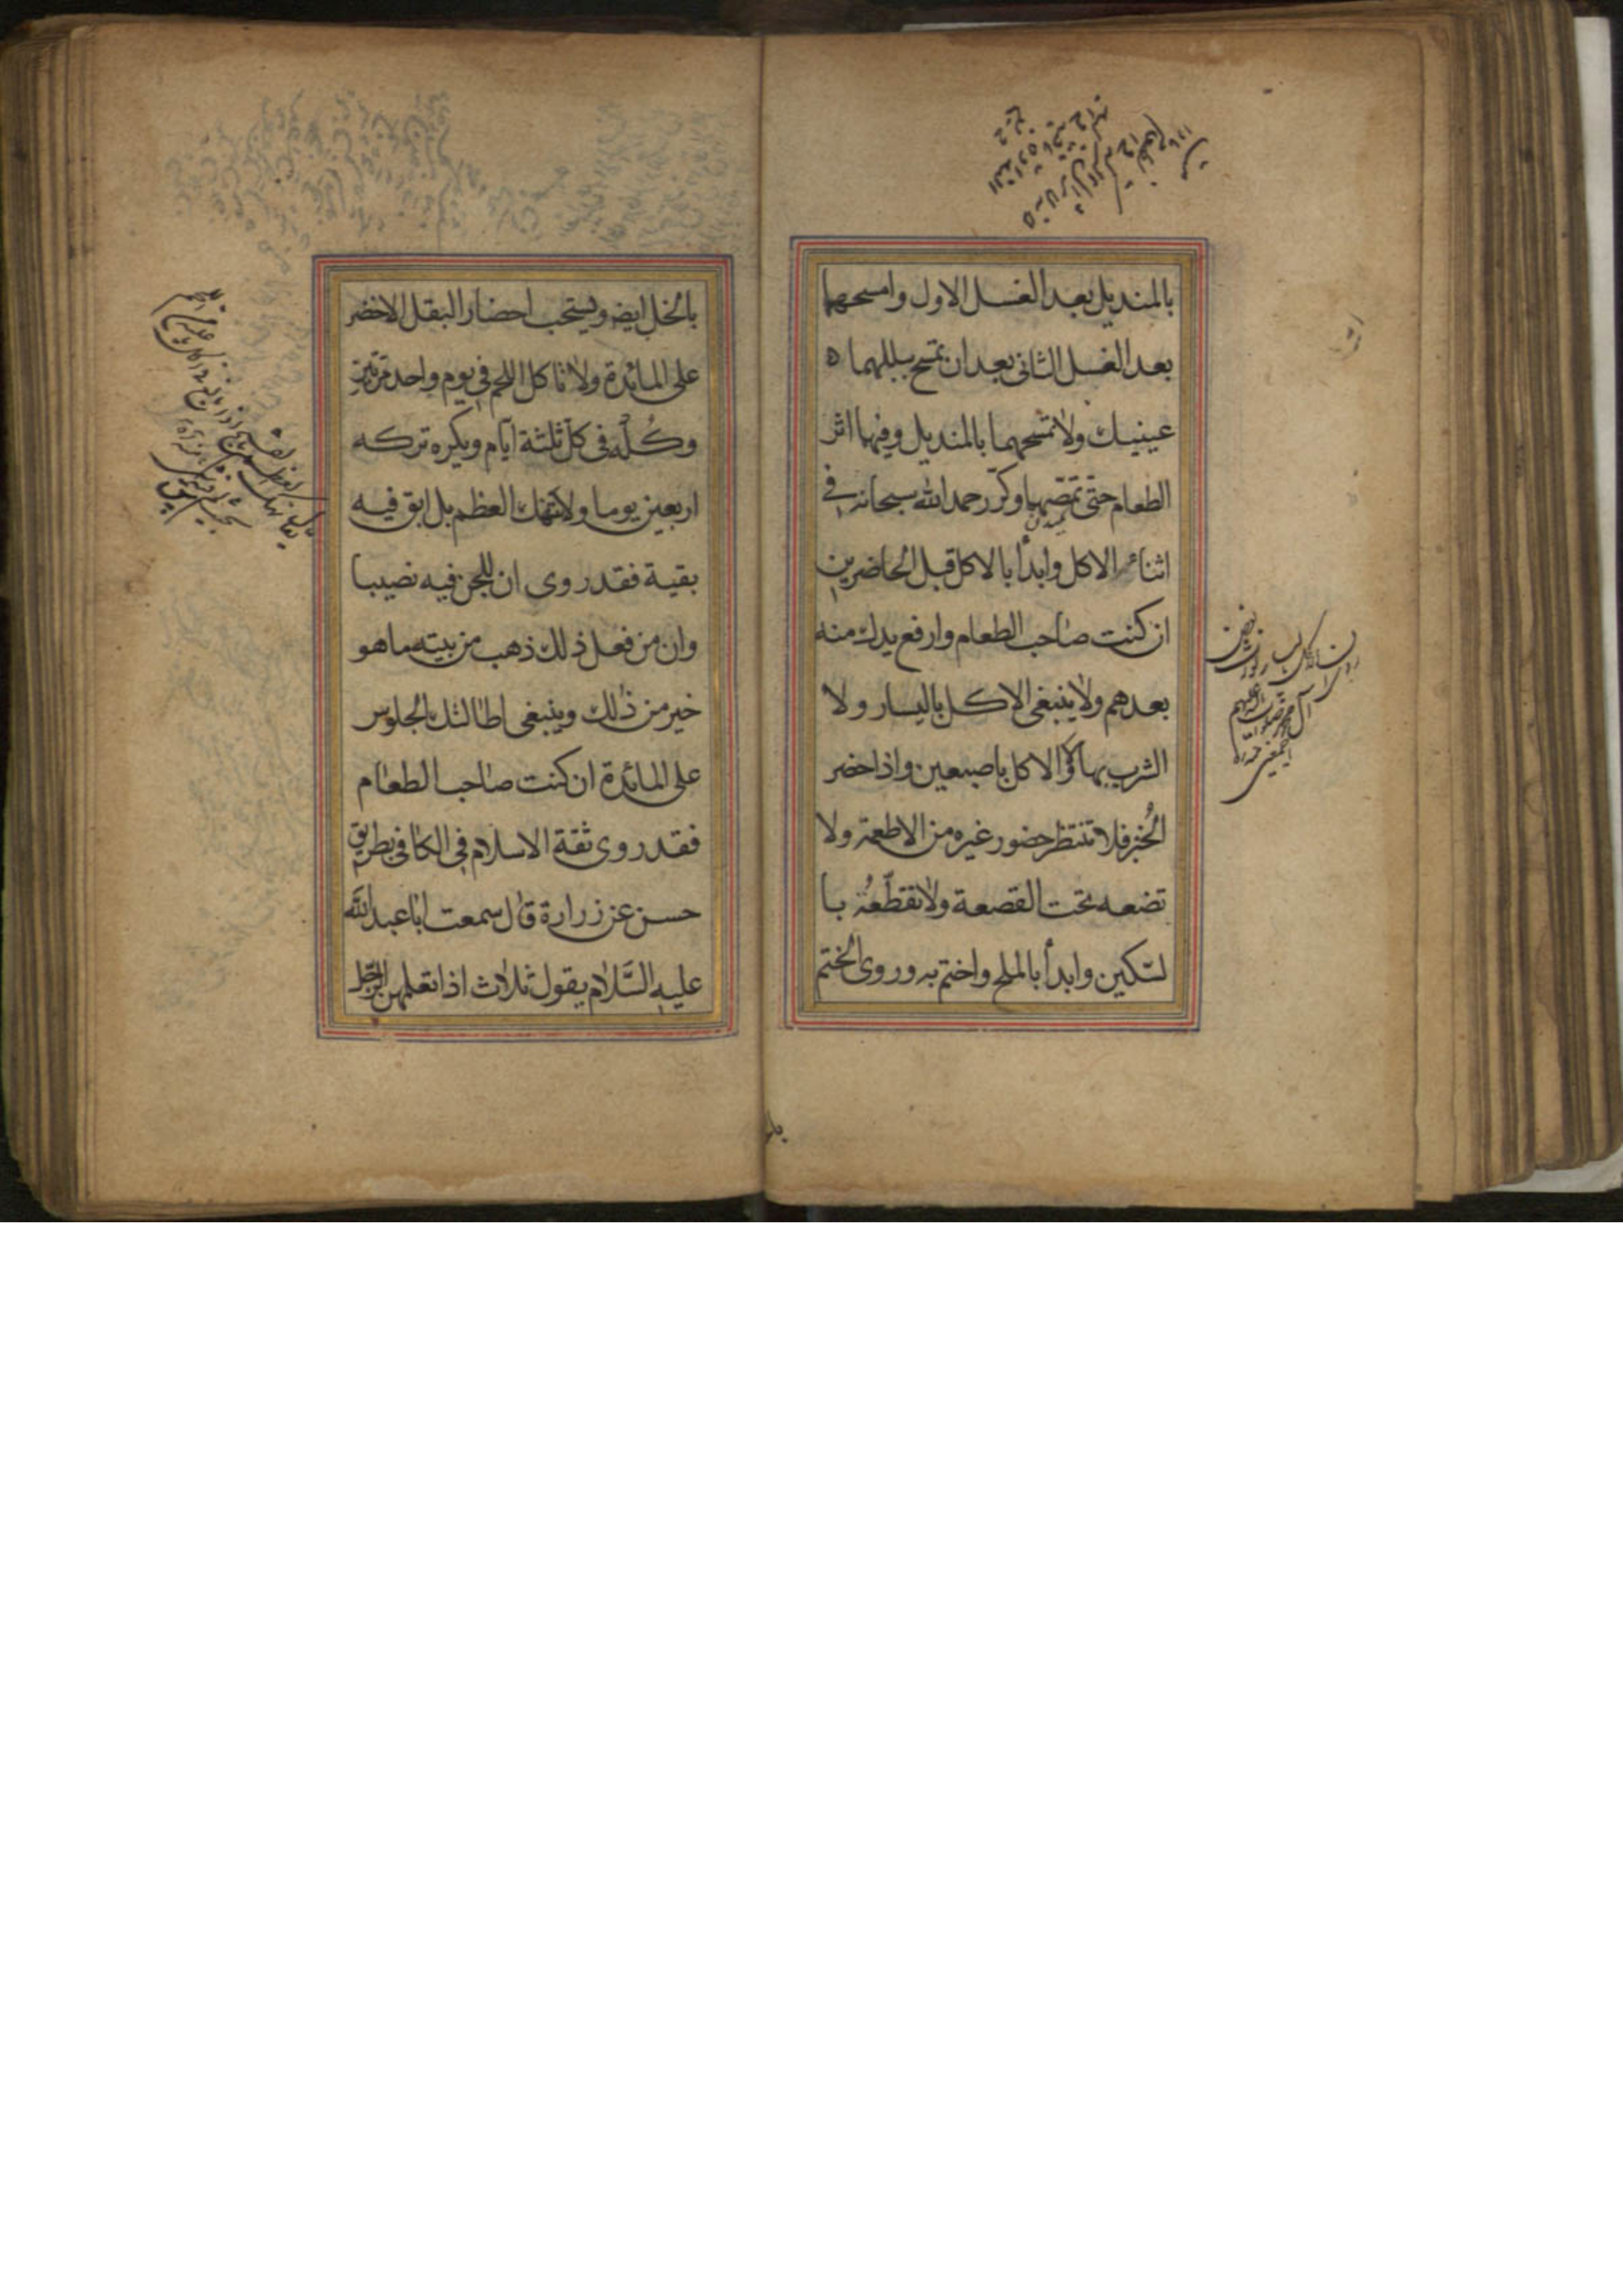 بالمنديل بعد الغسل الاول وامسحهما
بعد الغسل الثانى بعد ان تمسح ببللهما ه
عينيك ولا تمسحهما بالمنديل وفيهما اثر
الطعام حتى تمصّهما وكرّر حمد الله سبحانه فى
اثناء الاكل وابدأ بالاكل قبل الحاضرين
ان كنت صاحب الطعام وارفع يدك منه
بعدهم ولا ينبغى الاكل باليسار ولا
الشرب بها ولا الاكل باصبعين واذا حضر
الخُبز فلا تنتظر حضور غيره من الاطعمة ولا
تضعه تحت القصعة ولا تقطّعهُ با
لسّكين وابدأ بالملح واختم به وروى الختم
بالخل ايضه ويستحب احضار البقل الاخضر
على المائدة ولا تاكل اللحم فى يوم واحد مرّتين
وكُلْه فى كلّ ثلثة ايّام ويكره تركه
اربعين يوما ولا تنهك العظم بل ابق فيه
بقية فقد روى ان للجن فيه نصيبا
وان من فعل ذلك ذهب من بيته ما هو
خير من ذلك وينبغى اطالتك الجلوس
على المائدة ان كنت صاحب الطعام
فقد روى ثقة الاسلام فى الكافى بطريق
حسن عن زرارة قال سمعت ابا عبد الله
عليه السَّلام يقول ثلاث اذا تعلمهن الرّجل